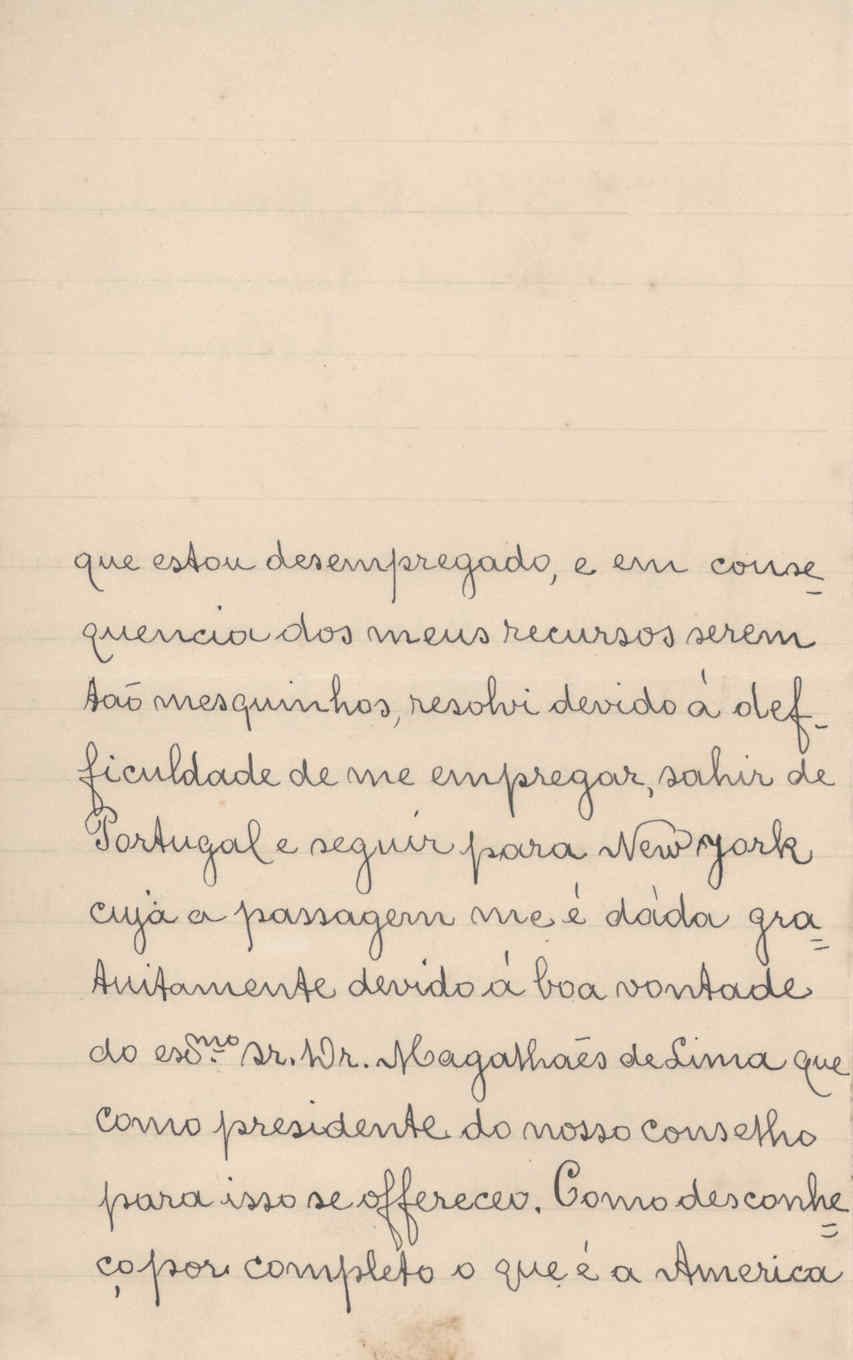 que estou desempregado, e em conse-
quencia dos meus recursos serem
taõ mesquinhos, resolvi devido á def-
ficuldade de me empregar, sahir de
Portugal e seguir para New York
cuja a passagem me é dáda gra=
tuitamente devido á boa vontade
do exmo Sr. Dr. Magalhaẽs de Lima que
como presidente do nosso conselho
para isso se offereceo. Como desconhe=
ço por completo o que é a America